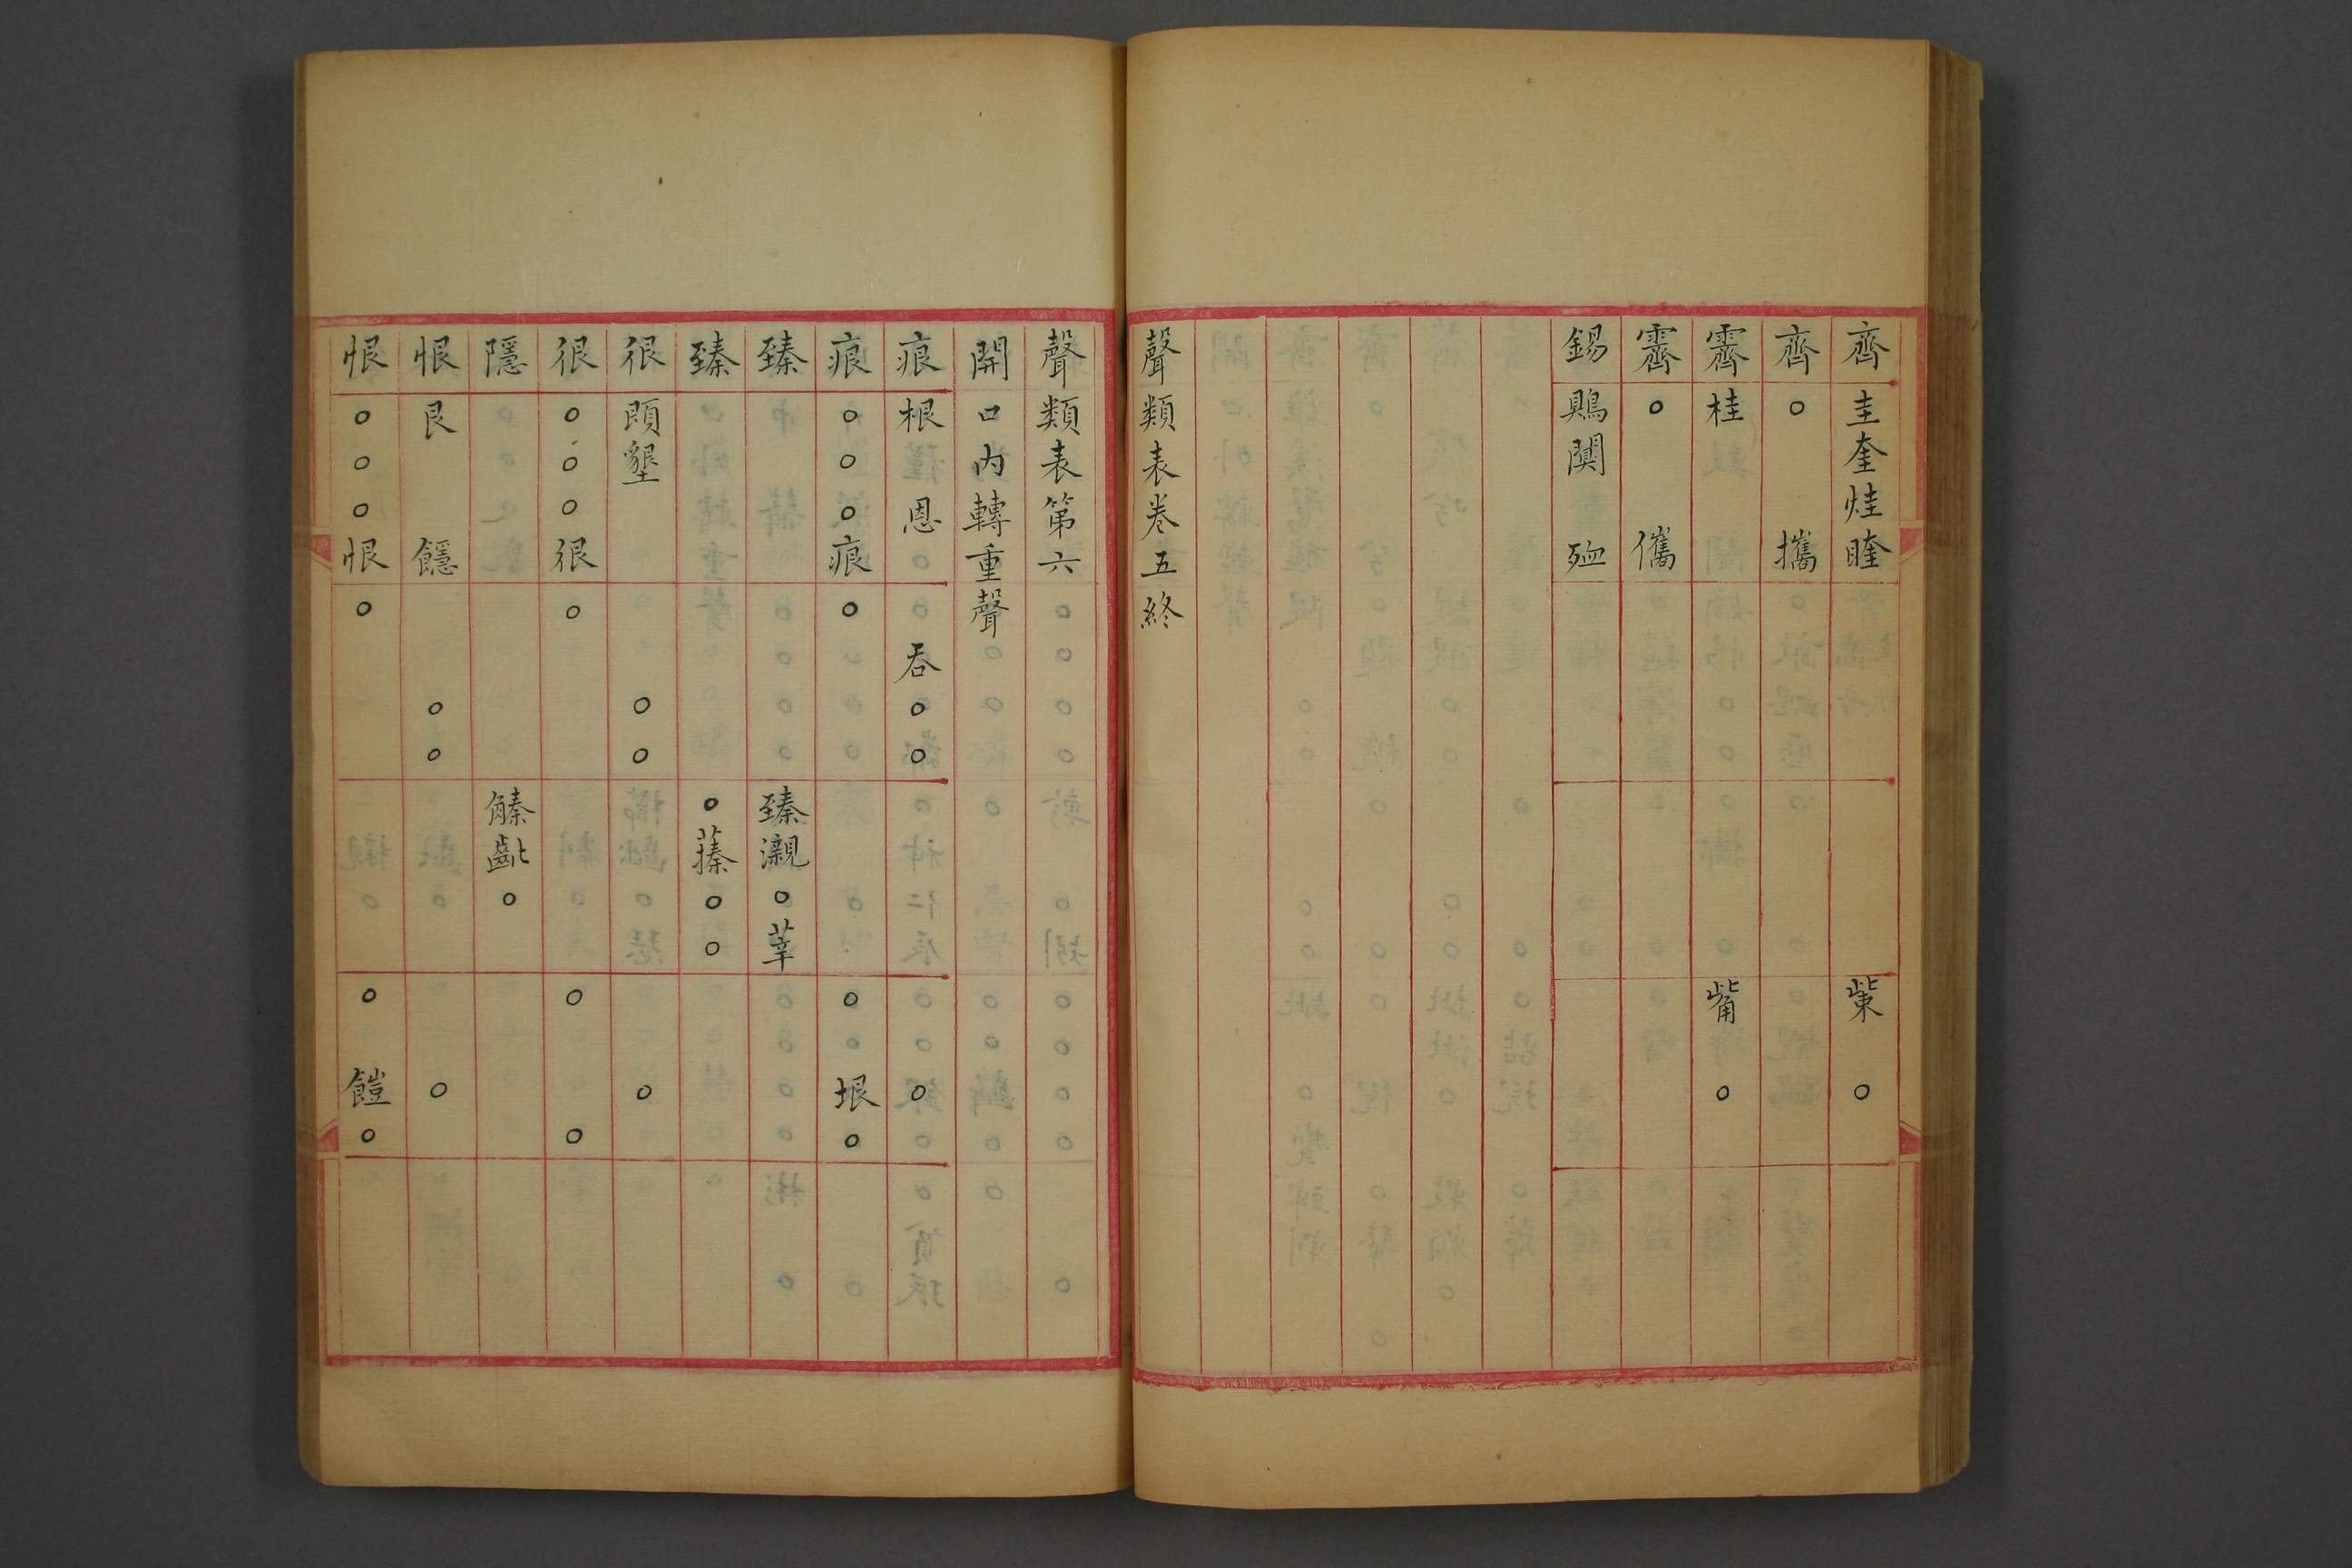 齊圭奎烓睳○
齊○攜
霽桂○
霽○㒞
錫鶪闃殈
聲類表卷五終
聲類表第六
開口内轉重聲
痕根恩吞○○○
痕○○○痕○○垠○
臻臻瀙○莘
臻○蓁○○
很頣墾○○○
很○○○很○○○
隱齔○
恨艮䭡○○○
恨○○○恨○○䭓○